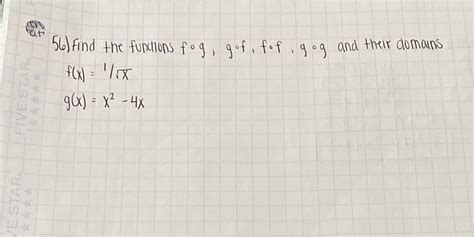 56) Find the functions f∘g, g∘f, f∘f, g∘g and their domains
f(x) = 1/√x
g(x) = x² - 4x
FIVE STAR